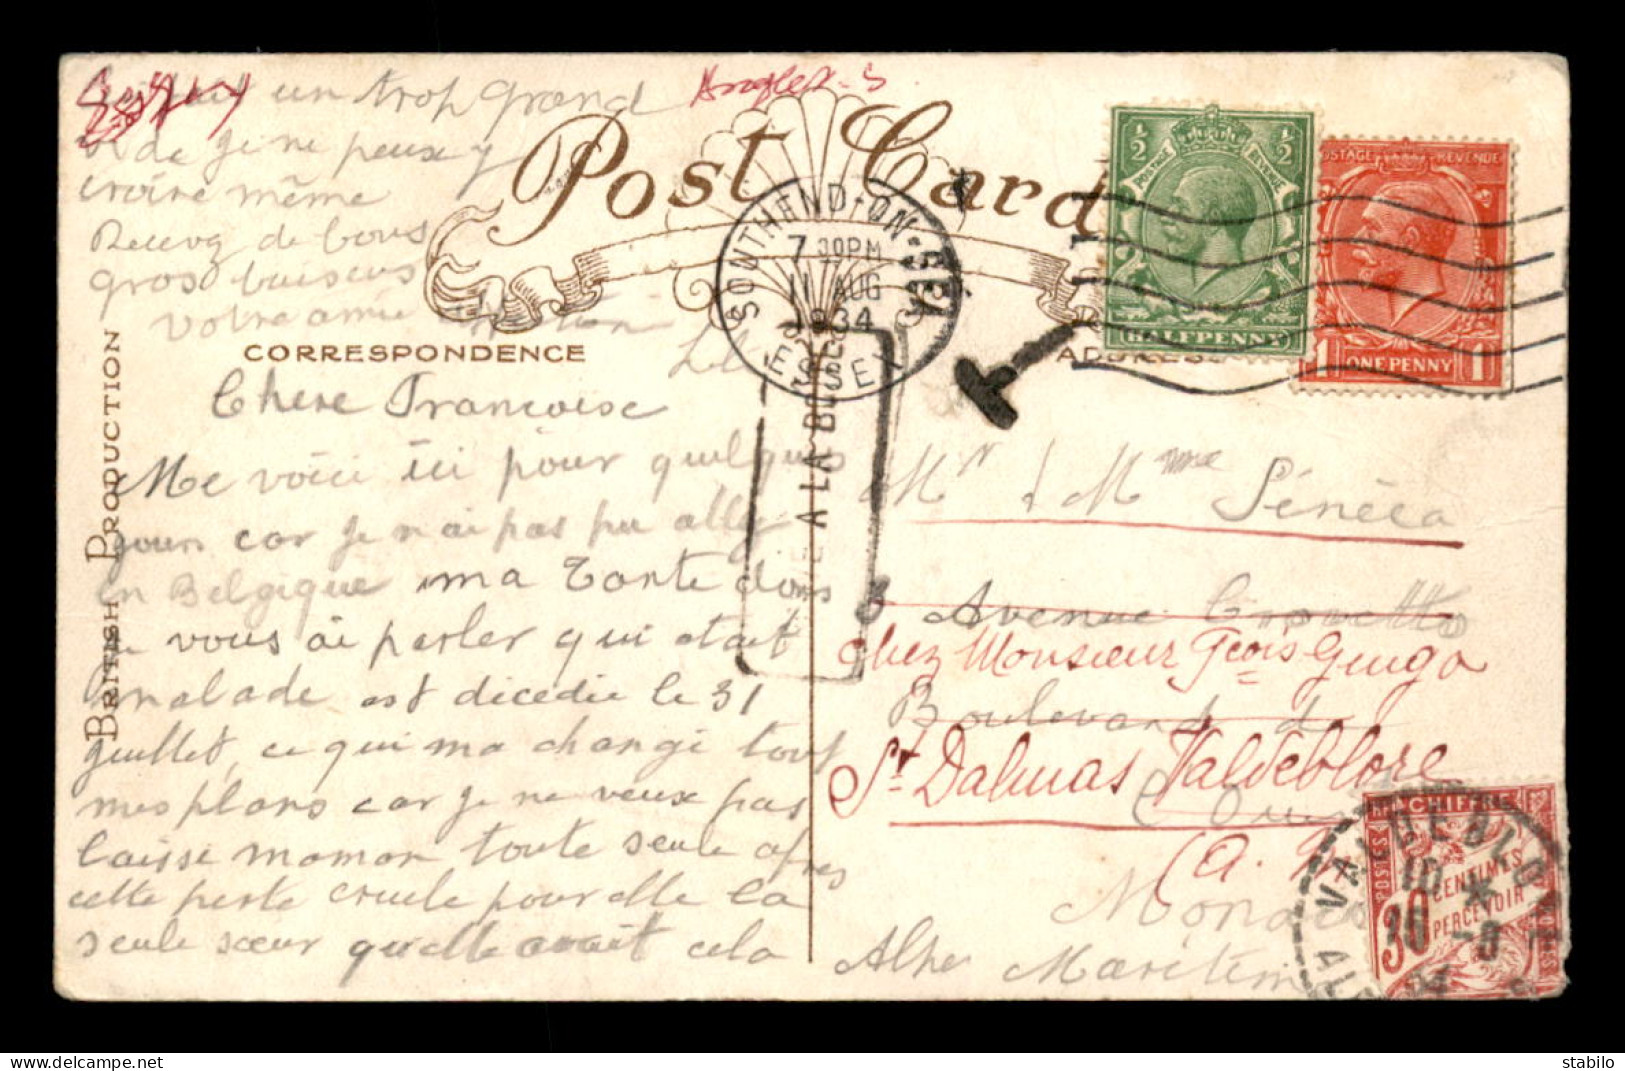 fait un trop grand
vide je ne peux y
croire même
Recevez de bons
gros baisers
votre amie
Post Card
CORRESPONDENCE
ADDRESS
BRITISH PRODUCTION
SOUTHEND-ON-SEA
7 30PM
11 AUG
1934
ESSEX
T
A LA BOITE
½ ½
POSTAGE REVENUE
HALFPENNY
POSTAGE REVENUE
1 ONE PENNY 1
Chere Francoise
Me voici ici pour quelques
jours car je n'ai pas pu aller
en Belgique ma Tante dons
je vous ai parler qui etait
malade est décedie le 31
juillet, ce qui ma changé tout
mes plans car je ne veux pas
laisse maman toute seule apres
cette perte cruele pour elle la
seule sœur qu'elle avait cela
Mr & Mme Sénéca
3 Avenue Crovetto
chez Monsieur Fçois Guigo
Boulevard de
St Dalmas Valdeblore
(A.
Monaco
Alpe Maritime
CHIFFRE
POSTES
30 CENTIMES
A PERCEVOIR
VALDEBLORE
10
stabilo
https://www.delcampe.net